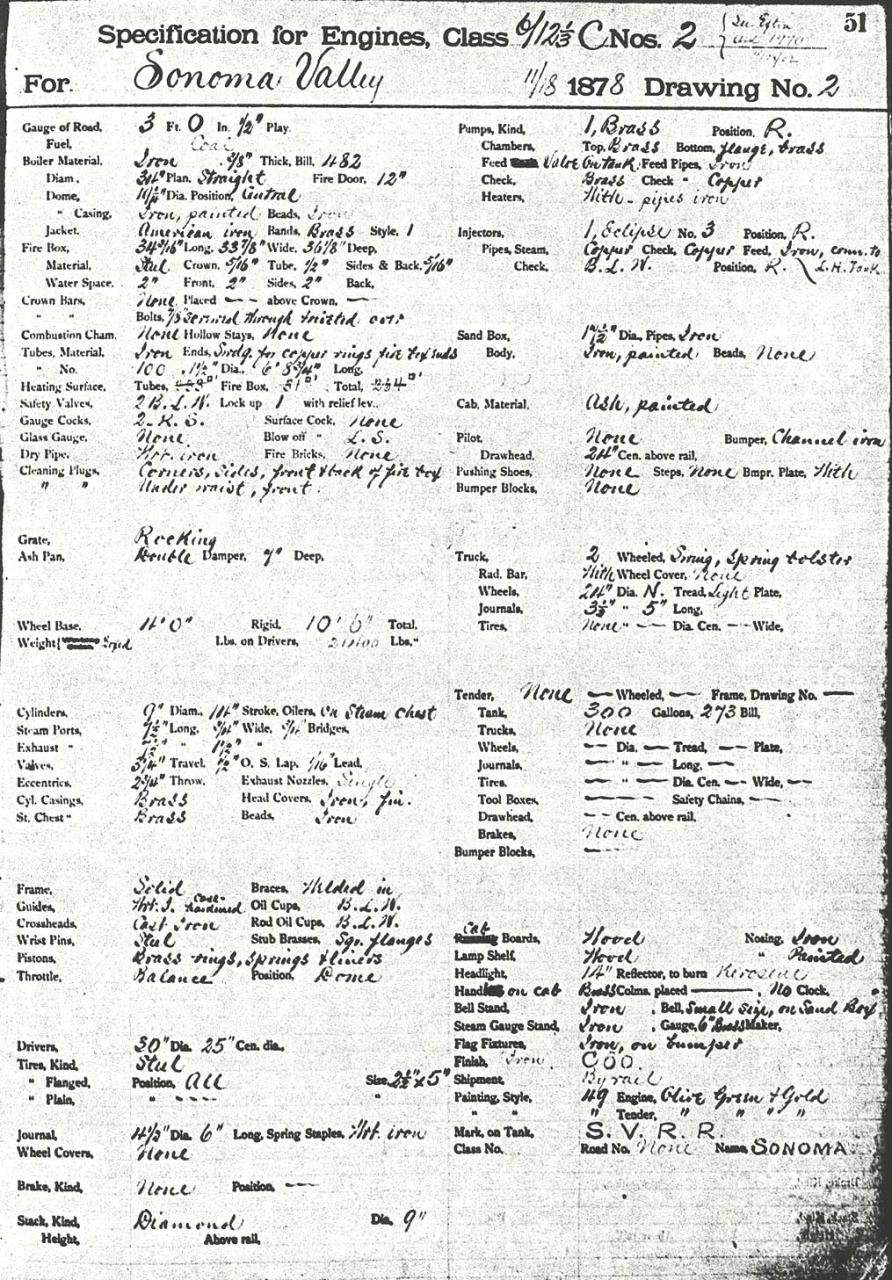 51
Specification for Engines, Class 6/12 1/3 C Nos. 2
For Sonoma Valley 11/18 1878 Drawing No. 2
Gauge of Road, 3 Ft. 0 In. 1/2" Play.
Fuel, Coal
Boiler Material, Iron 3/8" Thick, Bill, 482
Diam., 34" Plan, Straight Fire Door, 12"
Dome, Dia. Position, Central
" Casing, Iron, painted Beads, Iron
Jacket, American iron Bands, Brass Style, 1
Fire Box, 34 5/16" Long, 33 7/8" Wide, 36 1/8" Deep,
Material, Steel Crown, 5/16" Tube, 1/2" Sides & Back, 5/16"
Water Space, 2" Front, 2" Sides, 2" Back,
Crown Bars, None Placed — above Crown, —
" " Bolts, 7/8 screwed through & riveted over
Combustion Cham. None Hollow Stays, None
Tubes, Material, Iron Ends, Swdg. for copper rings fire box ends
" No. 100 . 1 1/2" Dia., 6' 8 3/4" Long,
Heating Surface, Tubes, Fire Box, Total,
Safety Valves, 2 B. L. W. Lock up 1 with relief lev.,
Gauge Cocks, 2 - K. S. Surface Cock, None
Glass Gauge, None Blow off " L. S.
Dry Pipe, Wrt. iron Fire Bricks, None
Cleaning Plugs, Corners, sides, front & back of fire box
" " Under waist, front.
Grate, Rocking
Ash Pan, Double Damper, 7" Deep,
Wheel Base, 4' 0" Rigid, 10' 6" Total.
Weight Lbs. on Drivers, Lbs."
Cylinders, 9" Diam., 14" Stroke, Oilers, On Steam Chest
Steam Ports, 7 1/2" Long, 3/4" Wide, Bridges,
Exhaust " 7 1/2" " 1 1/2" "
Valves, 3 3/4" Travel, 1/2" O. S. Lap, 1/16" Lead,
Eccentrics, 2 3/4" Throw, Exhaust Nozzles, Single
Cyl. Casings, Brass Head Covers, Iron, fin.
St. Chest " Brass Beads, Iron
Frame, Solid Braces, Welded in
Guides, Wrt. I. case-hardened Oil Cups, B. L. W.
Crossheads, Cast Iron Rod Oil Cups, B. L. W.
Wrist Pins, Steel Stub Brasses, Sqr. flanges
Pistons, Brass rings, springs & liners
Throttle, Balance Position, Dome
Drivers, 30" Dia. 25" Cen. dia.,
Tires, Kind, Steel
" Flanged, Position, All Size, 2 1/2" x 5"
" Plain, " — "
Journal, 4 1/2" Dia. 6" Long, Spring Staples, Wrt. iron
Wheel Covers, None
Brake, Kind, None Position, —
Stack, Kind, Diamond Dia. 9"
Height, Above rail,
Pumps, Kind, 1, Brass Position, R.
Chambers, Top, Brass Bottom, flange, brass
Feed Valve On tank Feed Pipes, Iron
Check, Brass Check " Copper
Heaters, With - pipes iron
Injectors, 1, Eclipse No. 3 Position, R.
Pipes, Steam, Copper Check, Copper Feed, Iron, conn. to
Check, B. L. W. Position, R. L. H. Tank
Sand Box, Dia., Pipes, Iron
Body, Iron, painted Beads, None
Cab, Material, Ash, painted
Pilot, None Bumper, Channel iron
Drawhead, 24" Cen. above rail,
Pushing Shoes, None Steps, None Bmpr. Plate, With
Bumper Blocks, None
Truck, 2 Wheeled, Swing, Spring bolster
Rad. Bar, With Wheel Cover, None
Wheels, 24" Dia. N. Tread, Light Plate,
Journals, 3 1/2" " 5" Long,
Tires, None " — Dia. Cen. — Wide,
Tender, None — Wheeled, — Frame, Drawing No. —
Tank, 300 Gallons, 273 Bill,
Trucks, None
Wheels, — Dia. — Tread, — Plate,
Journals, — " — Long, —
Tires, — " — Dia. Cen. — Wide, —
Tool Boxes, — Safety Chains, —
Drawhead, — Cen. above rail,
Brakes, None
Bumper Blocks, —
Cab Boards, Wood Nosing, Iron
Lamp Shelf, Wood " Painted
Headlight, 14" Reflector, to burn Kerosene
Hand on cab Brass Colms. placed — , No Clock,
Bell Stand, Iron . Bell, Small size, on Sand Box
Steam Gauge Stand, Iron . Gauge, 6" Brass Maker,
Flag Fixtures, Iron, on bumper
Finish, Iron C00.
Shipment, By rail
Painting, Style, 49 Engine, Olive Green & Gold
" " " Tender, " " " "
Mark, on Tank, S. V. R. R.
Class No. Road No. None Name, SONOMA